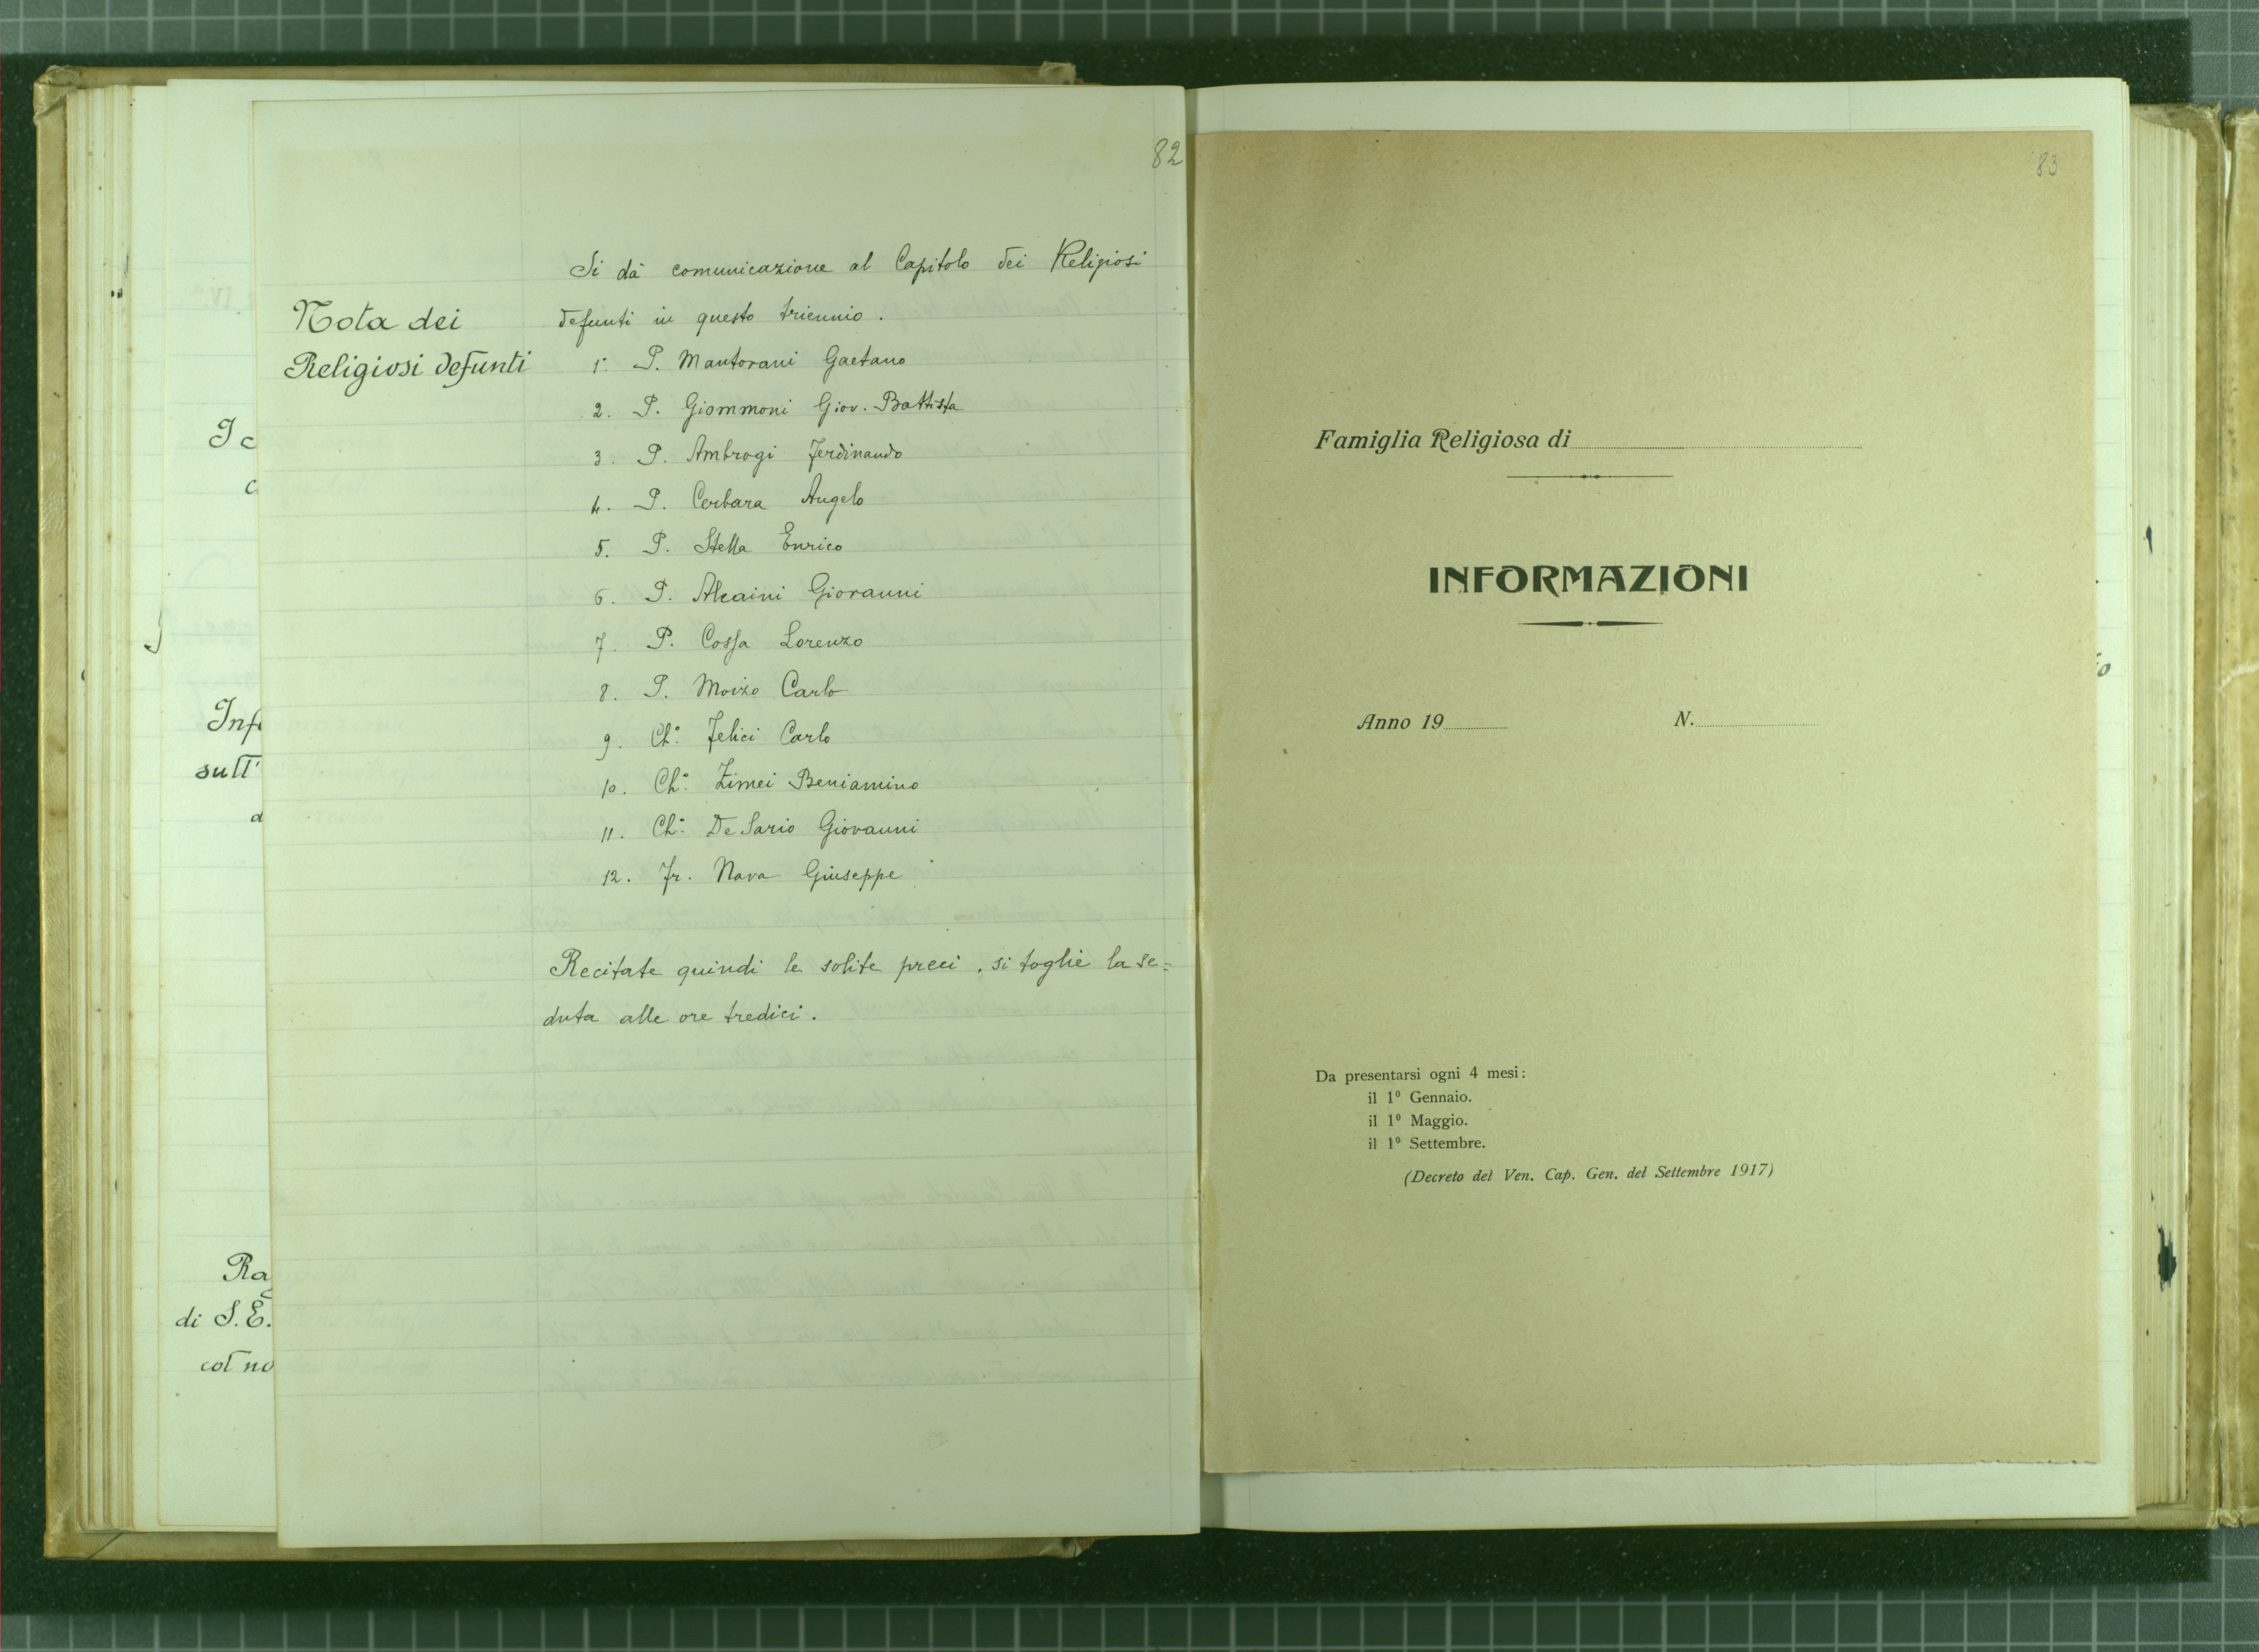 82
Si dà comunicazione al Capitolo dei Religiosi
Nota dei
Religiosi defunti
defunti in questo triennio.
1. P. Mantovani Gaetano
2. P. Giommoni Giov. Battista
3. P. Ambrogi Ferdinando
4. P. Cerbara Angelo
5. P. Stella Enrico
6. P. Alcaini Giovanni
7. P. Cossa Lorenzo
8. P. Moizo Carlo
9. Ch.º Felici Carlo
10. Ch.º Zimei Beniamino
11. Ch.º De Sario Giovanni
12. Fr. Nava Giuseppe
Recitate quindi le solite preci, si toglie la se=
duta alle ore tredici.
I c
c
Inf
sull'
d
Rag
di S. E.
col no
83
Famiglia Religiosa di
INFORMAZIONI
Anno 19 N.
Da presentarsi ogni 4 mesi:
il 1º Gennaio.
il 1º Maggio.
il 1º Settembre.
(Decreto del Ven. Cap. Gen. del Settembre 1917)